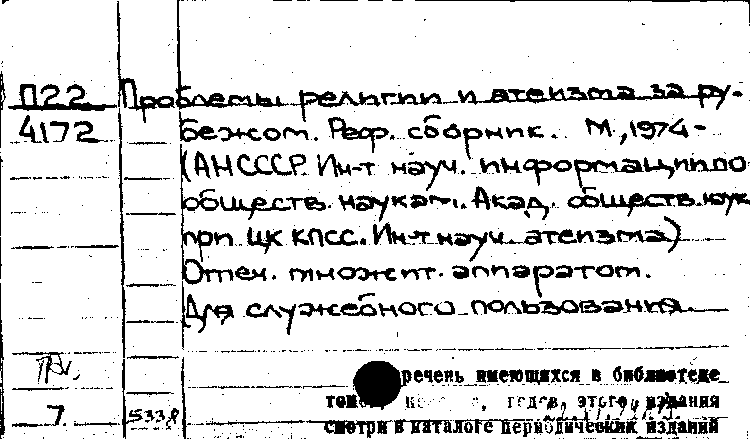 П22 Проблемы религии и атеизма за ру-
4172 бежом. Реф. сборник. М., 1974-
(АН СССР. Ин-т науч. информации по
обществ. наукам. Акад. обществ. наук
при ЦК КПСС. Ин-т науч. атеизма)
Отпеч. множит. аппаратом.
Для служебного пользования.
речень имеющихся в библиотеке
годов, этого издания
7 533 смотри в каталоге периодических изданий